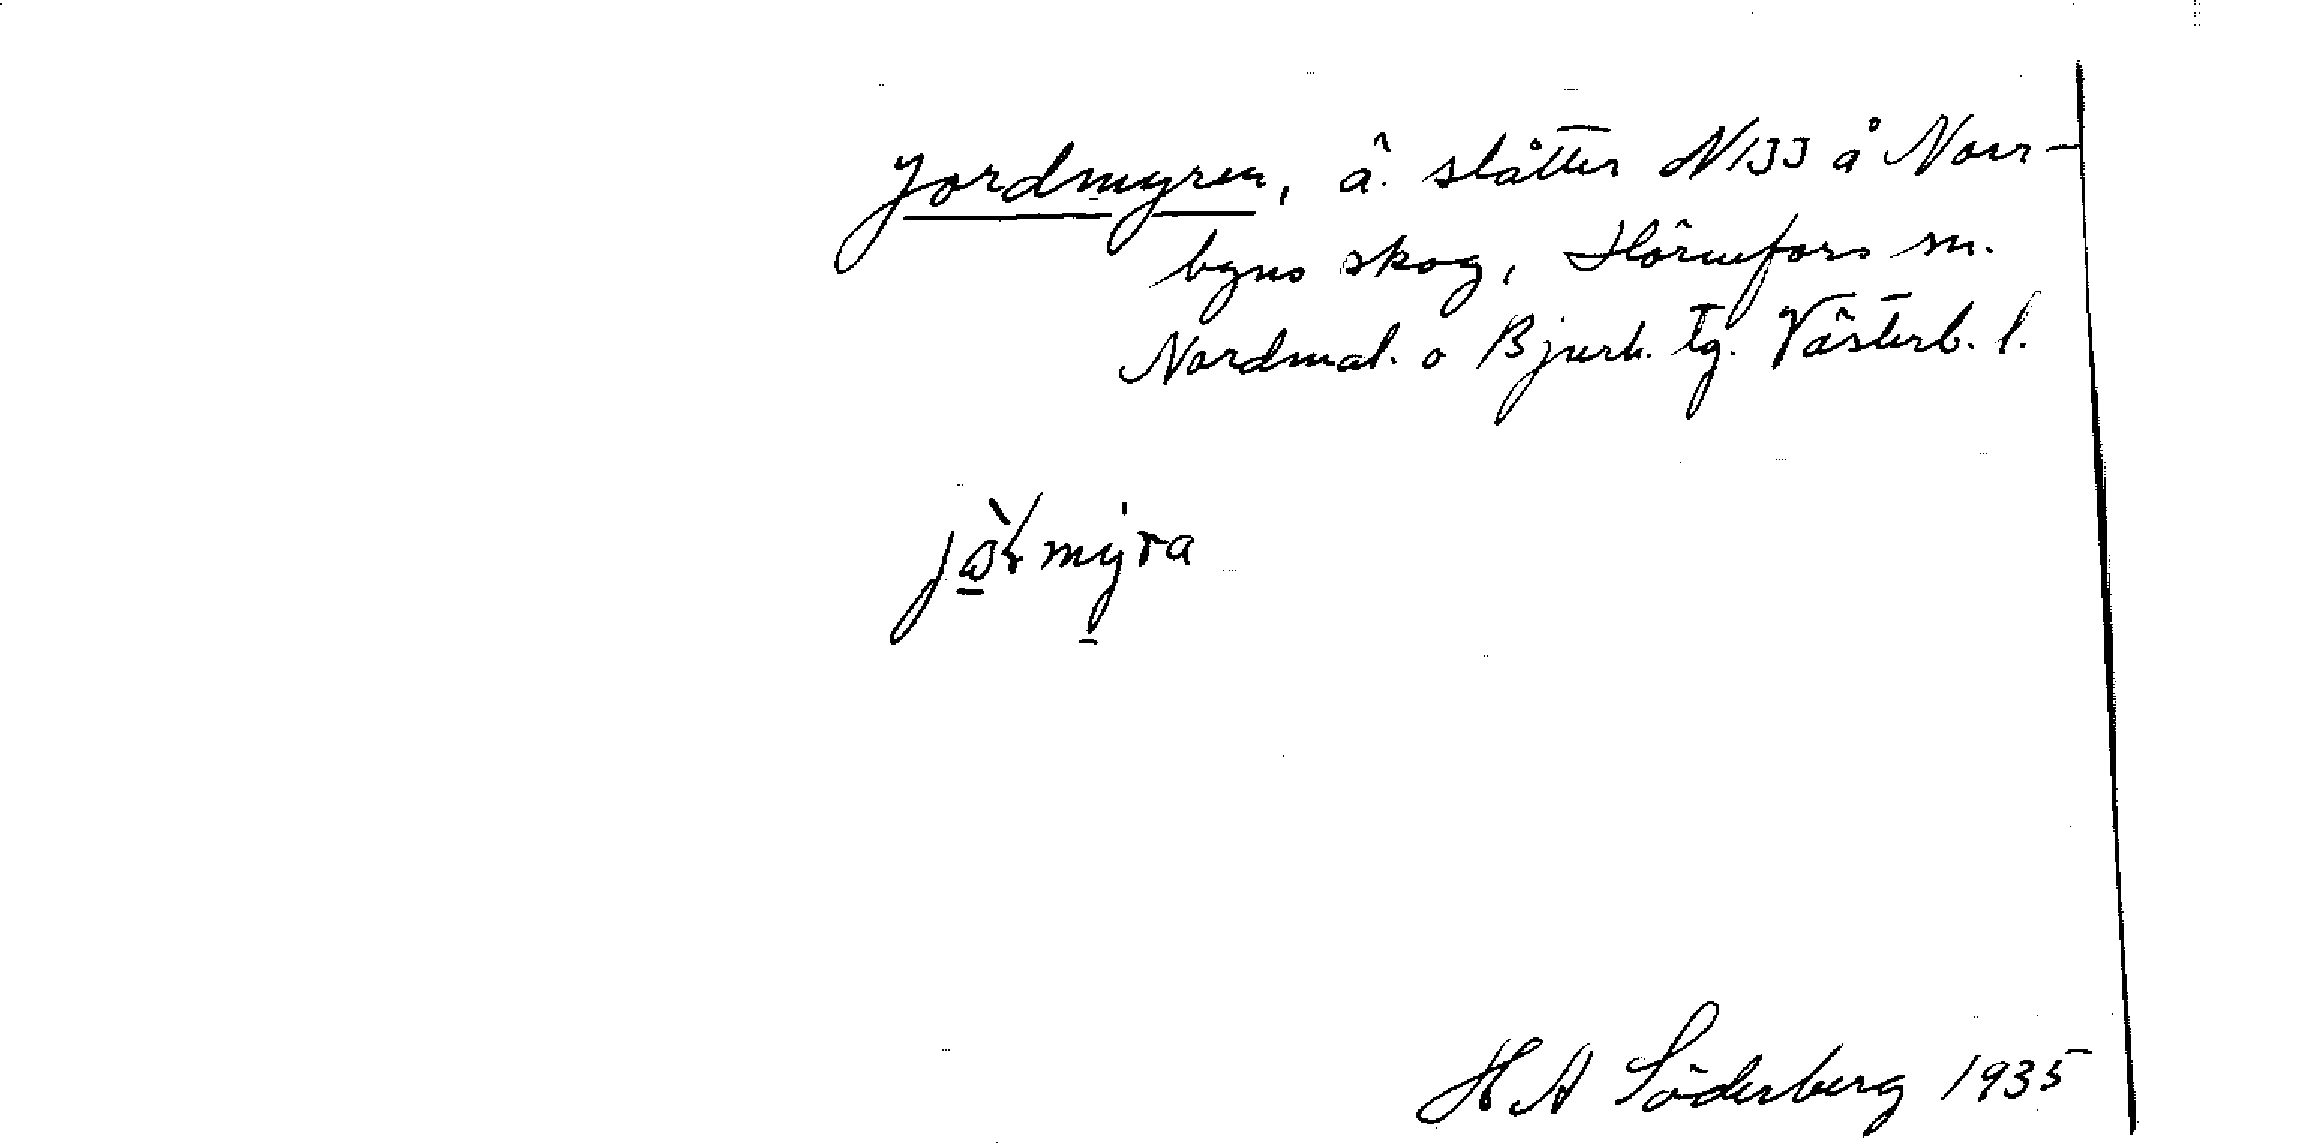 Jordmyren, ä. slåtter N133 å Norr-
byns skog, Hörnefors sn.
Nordmal. o Bjurh. tg. Västerb. l.
myra
H A Söderberg 1935